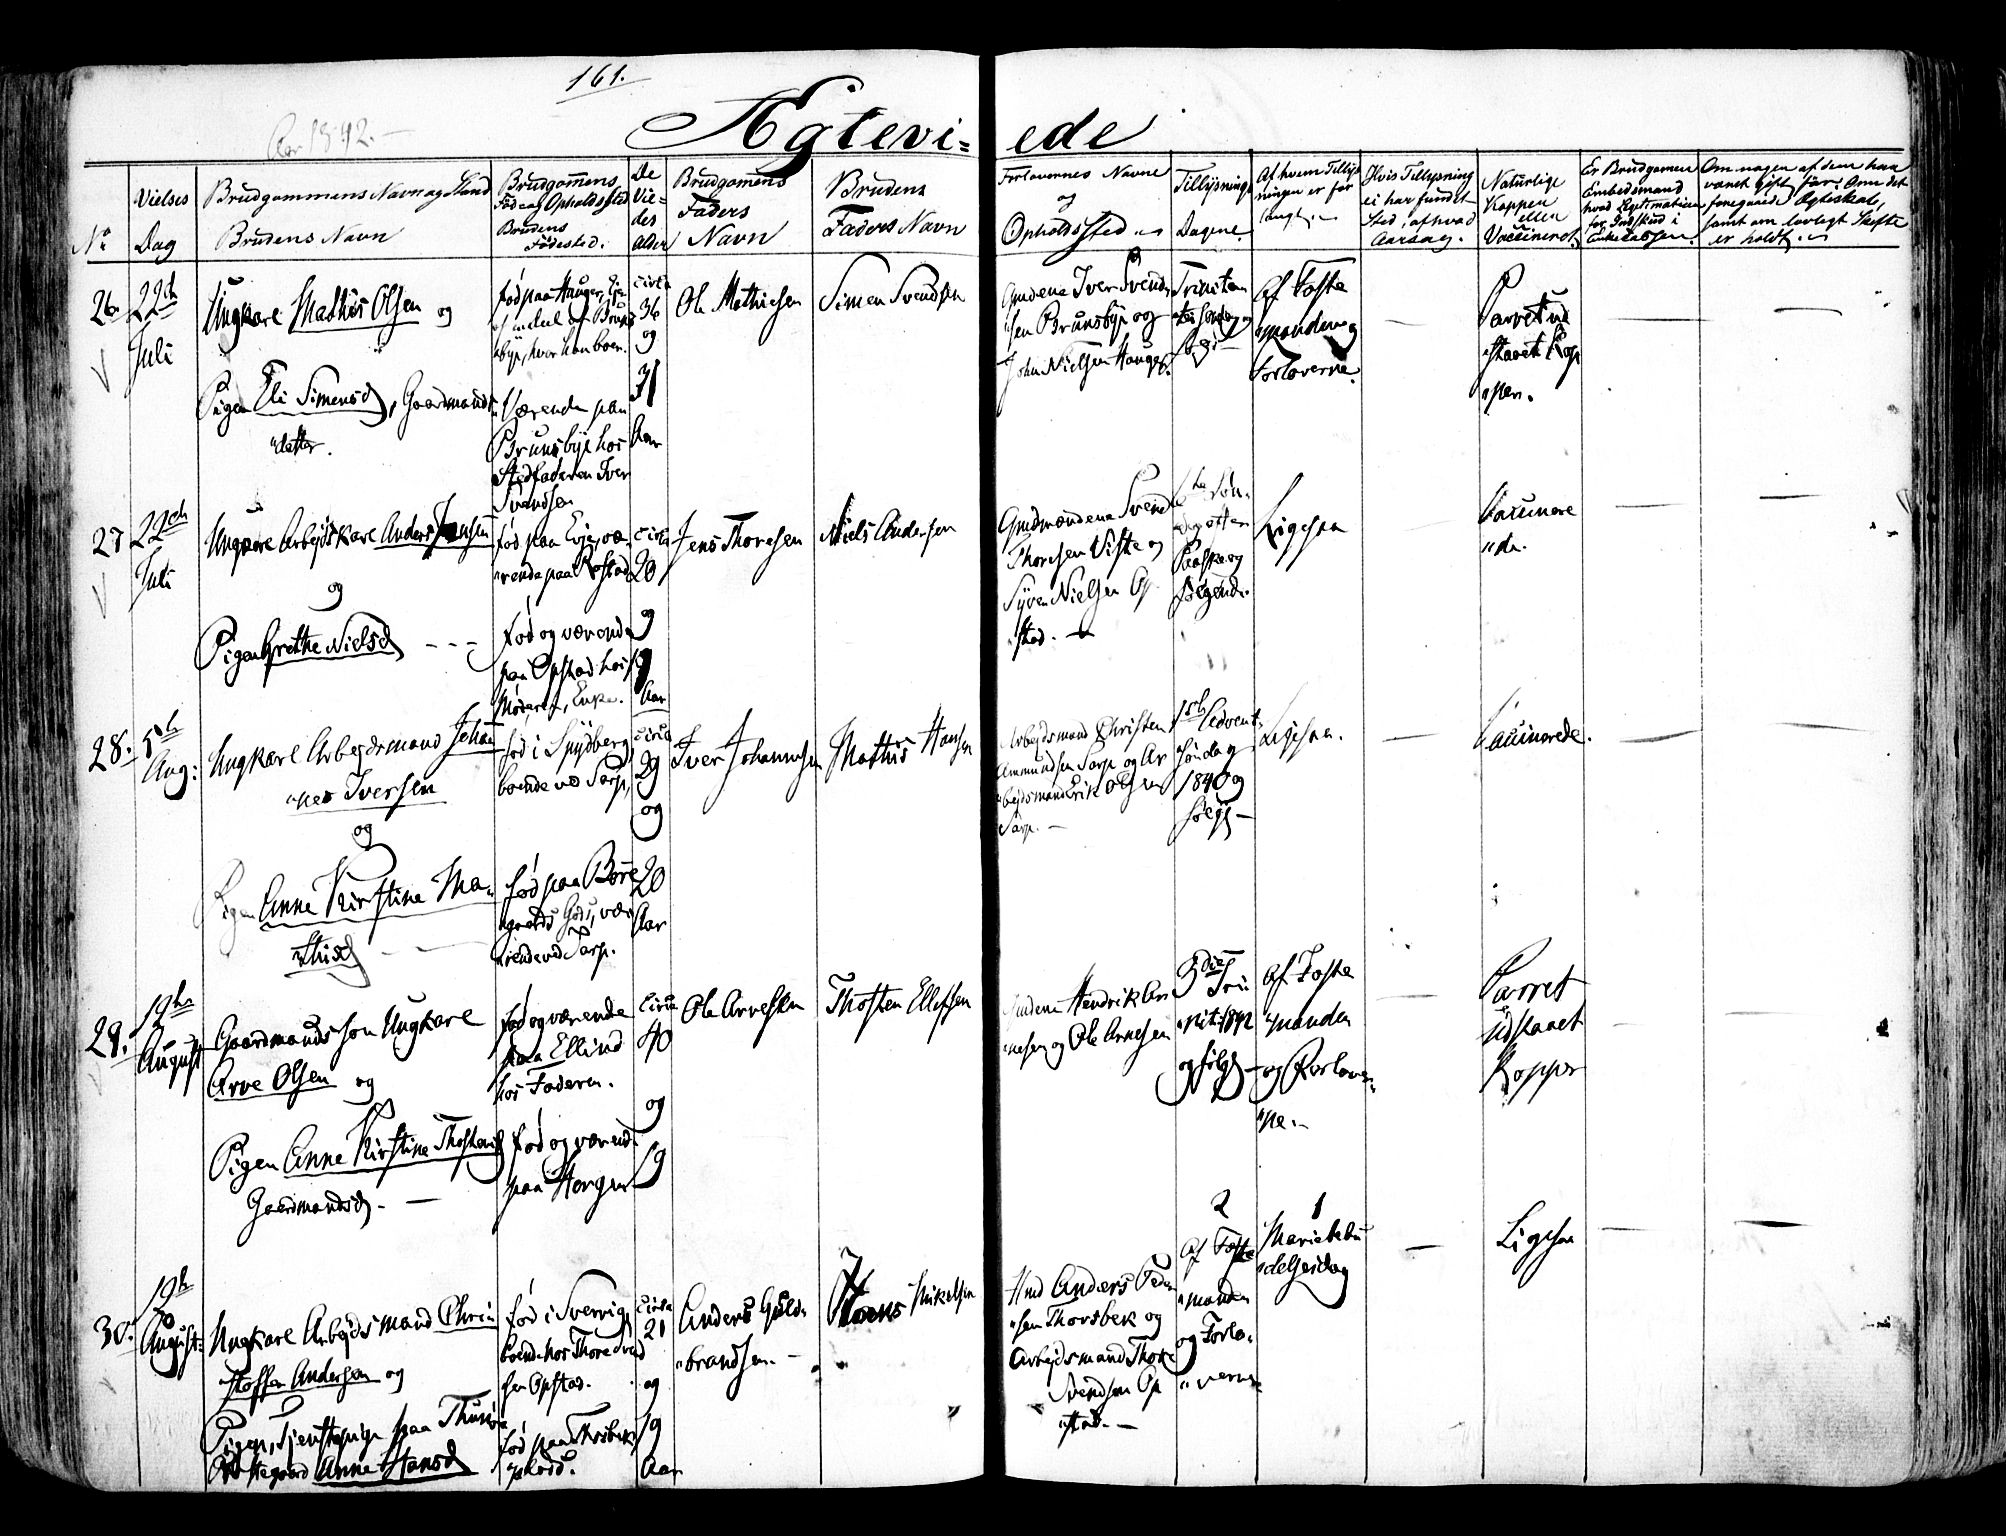 161.
Aar 1842.
Ægtevi= ede
No
Vielses
Dag
Brudgommens Navn og Stand
Brudens Navn
Brudgomens
Føde og Opholdssted
Brudens
Fødested.
De
Vie=
des
Alder
Brudgomens
Faders
Navn
Brudens
Faders Navn
Forlovernes Navne
og
Opholdssted
Tillysnings
Dagene.
Af hvem Tillys
ningen er for
langt.
Hvis Tillysning
ei har fundet
Sted, af hvad
Aarsag.
Naturlige
Kopper
eller
Vaccineret
Er Brudgomen
Embedsmand
hvad Legitimation
for Indskud i
Enkekassen.
Om nogen af dem har
været gift før: Om det
foregaaende Ægteskab,
samt om lovligt Skifte
er holdt.
26.
22de
Juli
Ungkarl Mathis Olsen og
Pigen Eli Simensd, Gaardmands
datter.
født paa Hauger, Ei
byn, hvor han boer.
Værende paa
Brunsbye hos
Stedfaderen Iver
Svendsen
circa
36
og
31
Aar
Ole Mathiesen
Simen Svendsen
Gmdene Iver Svend
sen Brunsbye og
John Nielsen Hauger.
Trinita
tis Søndag og
følg:
Af Faste
manden og
Forloverne.
Parret ud
staaet Kop
per.
27
22de
Juli
Ungkarl Arbeidskarl Anders Jensen
og
Pigen Grethe Nielsd
fød paa Evje, væ
rende paa Rostad
fød og værende
paa Opstad hos
Moderen, Enke.
circa
20
og
Aar
Jens Thoresen
Niels Andersen
Gmdmændene Svend
Thoresen Viste og
Syver Nielsen Op
stad.
Søn
dag efter
Paaske og
følgende.
Ligesaa
Vaccinere
de.
28.
5te
Aug:
Ungkarl Arbejdsmand Johan
nes Iversen
og
Pigen Anne Kirstine Ma
thisd
fød i Spydberg,
boende ved Sarp,
fød paa Borre
gaards Gods, væ
rende ved Sarp.
circa
29
og
20
Aar
Iver Johannesen
Mathis Hansen
Arbejdsmand Christen
Ammundsen Sarp og Ar
bejdsmand Erik Olsen
Sarp.
1ste Advent
Søndag
1840 og
følg
Ligesaa.
Vaccinerede.
29.
19de
August
Gaardmands søn Ungkarl
Arve Olsen og
Pigen Anne Kirstine Thostensd
Gaardmandsd.
fød og værende
paa Ellind
hos Faderen.
fød og værende
paa Horgen
circa
40
og
19
Ole Arvesen
Thosten Ellefsen
Gmdene Hendrik Ar
nesen og Ole Arnesen
3die Tri
nit: 1842
og følg
Af Faste
manden
og Forlover
ne.
Parret
udstaaet
Kopper
30.
19de
August:
Ungkarl Arbejdsmand Chri
stoffer Andersen og
Pigen, Tjenstepige paa Thune
Præstegaard Anne Hansd
fød i Sverrig,
boende hos Thore Svend
sen Opstad.
circa
21
og
19
Aar
Anders Guld
brandsen.
Hans Mikelsen
Gmd Anders Peder
sen Thorsbek og
Arbejdsmand Thore
Svendsen Op
stad.
2
Af Faste
manden
og Forlo
verne
1
Mariebebu
delsesdag
Ligesaa